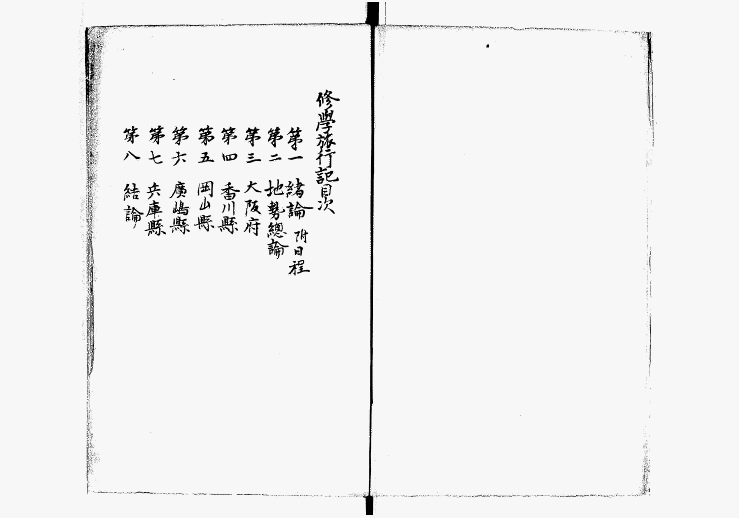 修學旅行記目次
第一 緒論 附日程
第二 地勢總論
第三 大阪府
第四 香川縣
第五 岡山縣
第六 廣嶋縣
第七 兵庫縣
第八 結論